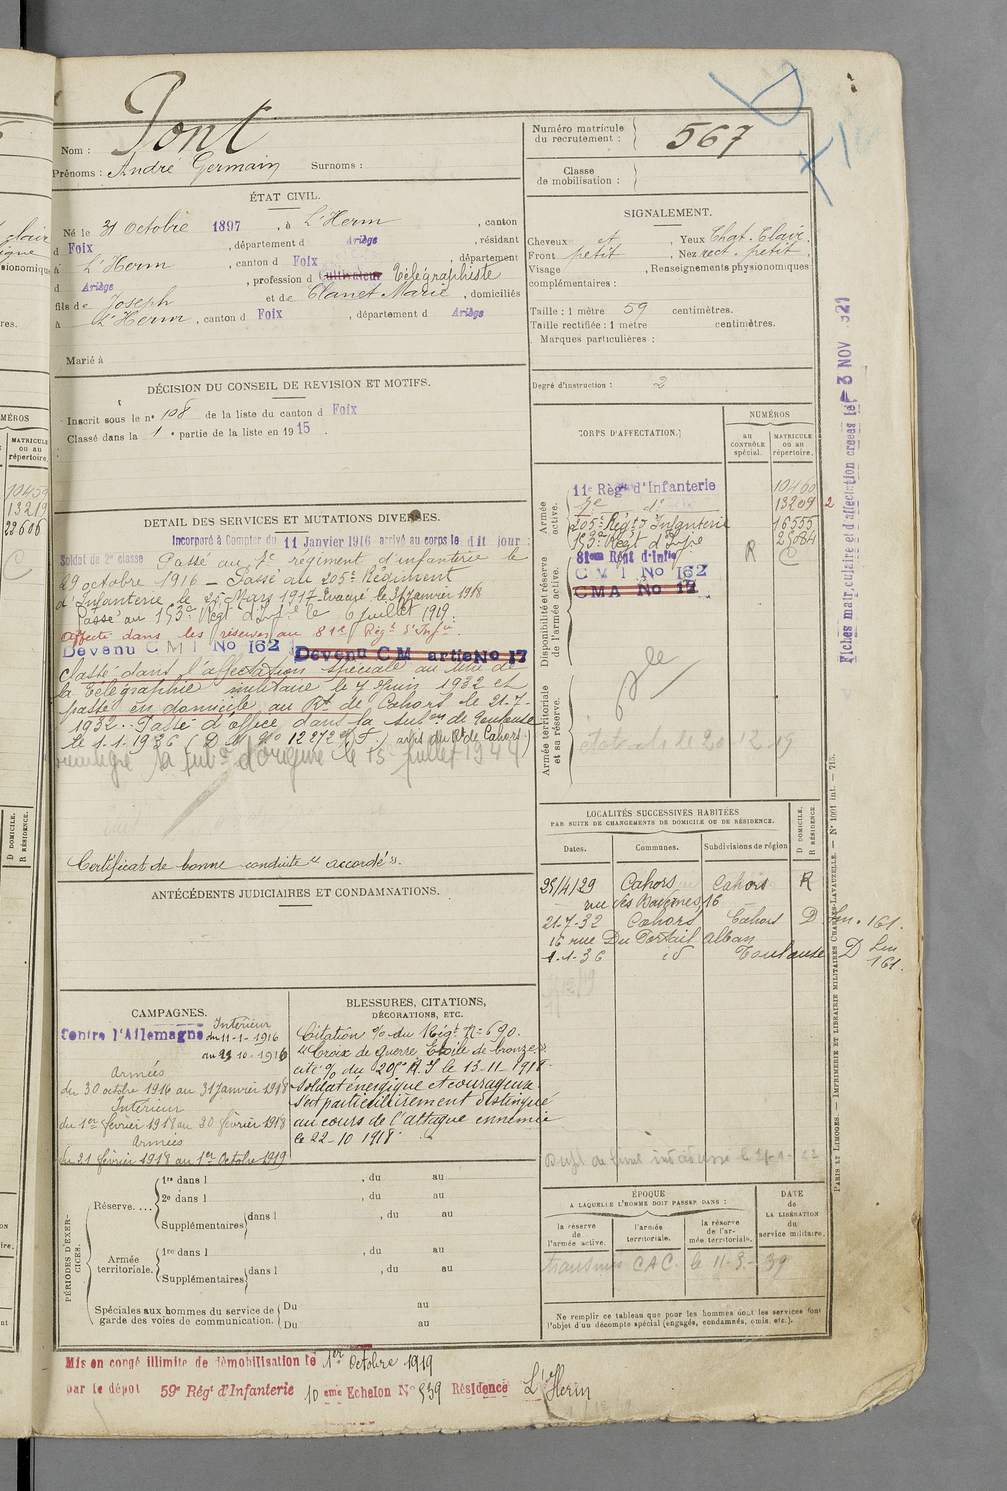 Nom : Pont
Prénoms : André Germain Surnoms :
Numéro matricule du recrutement : 567
Classe de mobilisation :
ÉTAT CIVIL.
Né le 31 Octobre 1897, à L'Herm, canton
d Foix, département d Ariège, résidant
à L'Herm, canton d Foix, département
d Ariège, profession d Cultivateur Télégraphiste
fils de Joseph et de Clanet Marie, domiciliés
à L'Herm, canton d Foix, département d Ariège
Marié à
SIGNALEMENT.
Cheveux ct, Yeux Chat. Clair.
Front petit, Nez rect. petit,
Visage , Renseignements physionomiques
complémentaires :
Taille : 1 mètre 59 centimètres.
Taille rectifiée : 1 mètre centimètres.
Marques particulières :
Degré d'instruction : 2
DÉCISION DU CONSEIL DE REVISION ET MOTIFS.
Inscrit sous le n° 108 de la liste du canton d Foix
Classé dans la 1e partie de la liste en 1915.
DÉTAIL DES SERVICES ET MUTATIONS DIVERSES.
Incorporé à Compter du 11 Janvier 1916 arrivé au corps le dit jour
Soldat de 2e classe Passé au 7e régiment d'infanterie le
29 octobre 1916 – Passé au 205e Régiment
d'Infanterie le 25 Mars 1917 – Evacué le 31 Janvier 1918
Passé au 153e Régt d'Infie le 6 juillet 1919.
Affecté dans les réserves au 81e Régt d'Infie
Devenu C M I No 162 Devenu C M artie No 17
Classé dans l'affectation spéciale au titre de
la télégraphie militaire le 7 Juin 1932 et
passé en domicile au Rt de Cahors le 21-7-
1932. Passé d'office dans la subon de Toulouse
le 1-1-1936 (D M No 12272 avis du Rt de Cahors.)
réintégré sa subon d'origine le 15 juillet 1944
Certificat de bonne conduite "accordé".
CORPS D'AFFECTATION.
NUMÉROS
AU CONTRÔLE spécial.
MATRICULE OU AU répertoire.
Armée active.
11e Régt d'Infanterie 10460
7e d° 13209 2
205e Régt d'Infanterie 16555
153e Régt d'Infie 25084
Disponibilité et réserve de l'armée active.
81eme Régt d'Infie R C
C M I No 162
CMA No 17
Armée territoriale et sa réserve.
20-12-19
ANTÉCÉDENTS JUDICIAIRES ET CONDAMNATIONS.
LOCALITÉS SUCCESSIVES HABITÉES
PAR SUITE DE CHANGEMENTS DE DOMICILE OU DE RÉSIDENCE.
Dates. Communes. Subdivisions de région
D DOMICILE.
R RÉSIDENCE.
25/4/29 Cahors Cahors R
rue des 16
21-7-32 Cahors Cahors D Lm. 161.
16 rue Du Portail Alban
1-1-36 id Toulouse D Lm 161.
CAMPAGNES.
Contre l'Allemagne Intérieur
du 11-1-1916
au 29 10-1916
Armées
du 30 octobre 1916 au 31 Janvier 1918
Intérieur
du 1er février 1918 au 20 février 1918
Armées
du 21 février 1918 au 1er Octobre 1919
BLESSURES, CITATIONS,
DÉCORATIONS, ETC.
Citation % du Régt No 690.
"Croix de Guerre, Etoile de bronze".
cité % du 205e R.I le 13-11-1918
soldat énergique et courageux
s'est particulièrement distingué
au cours de l'attaque ennemie
le 22-10 1918.
PÉRIODES D'EXERCICES.
Réserve.... 1re dans l , du au
2e dans l , du au
Supplémentaires dans l , du au
Armée territoriale. 1re dans l , du au
Supplémentaires dans l , du au
Spéciales aux hommes du service de garde des voies de communication. Du au
Du au
ÉPOQUE
A LAQUELLE L'HOMME DOIT PASSER DANS :
la réserve de l'armée active.
l'armée territoriale.
la réserve de l'armée territoriale.
DATE DE LA LIBÉRATION du service militaire.
transmis CAC. le 11-3-39
Ne remplir ce tableau que pour les hommes dont les services font
l'objet d'un décompte spécial (engagés, condamnés, omis, etc.).
Mis en congé illimité de démobilisation le 1er Octobre 1919
par le dépôt 59e Régt d'Infanterie 10eme Echelon No 539 Résidence L'Herm
Fiches matriculaire et d'affectation créées le 3 NOV 1921
PARIS ET LIMOGES. — IMPRIMERIE ET LIBRAIRIE MILITAIRES CHARLES-LAVAUZELLE. — N° 1001 int. — 715.
MATRICULE
OU AU
répertoire.
10459
13219
22606
C